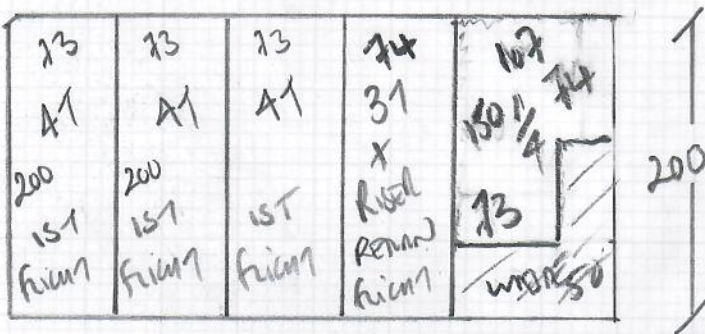 73
4T
200
1ST
FLIGHT
73
4T
200
1ST
FLIGHT
73
4T
1ST
FLIGHT
74
3T
X
RISER
RETURN
FLIGHT
107
74
150 1/4
73
WASTE 50
200